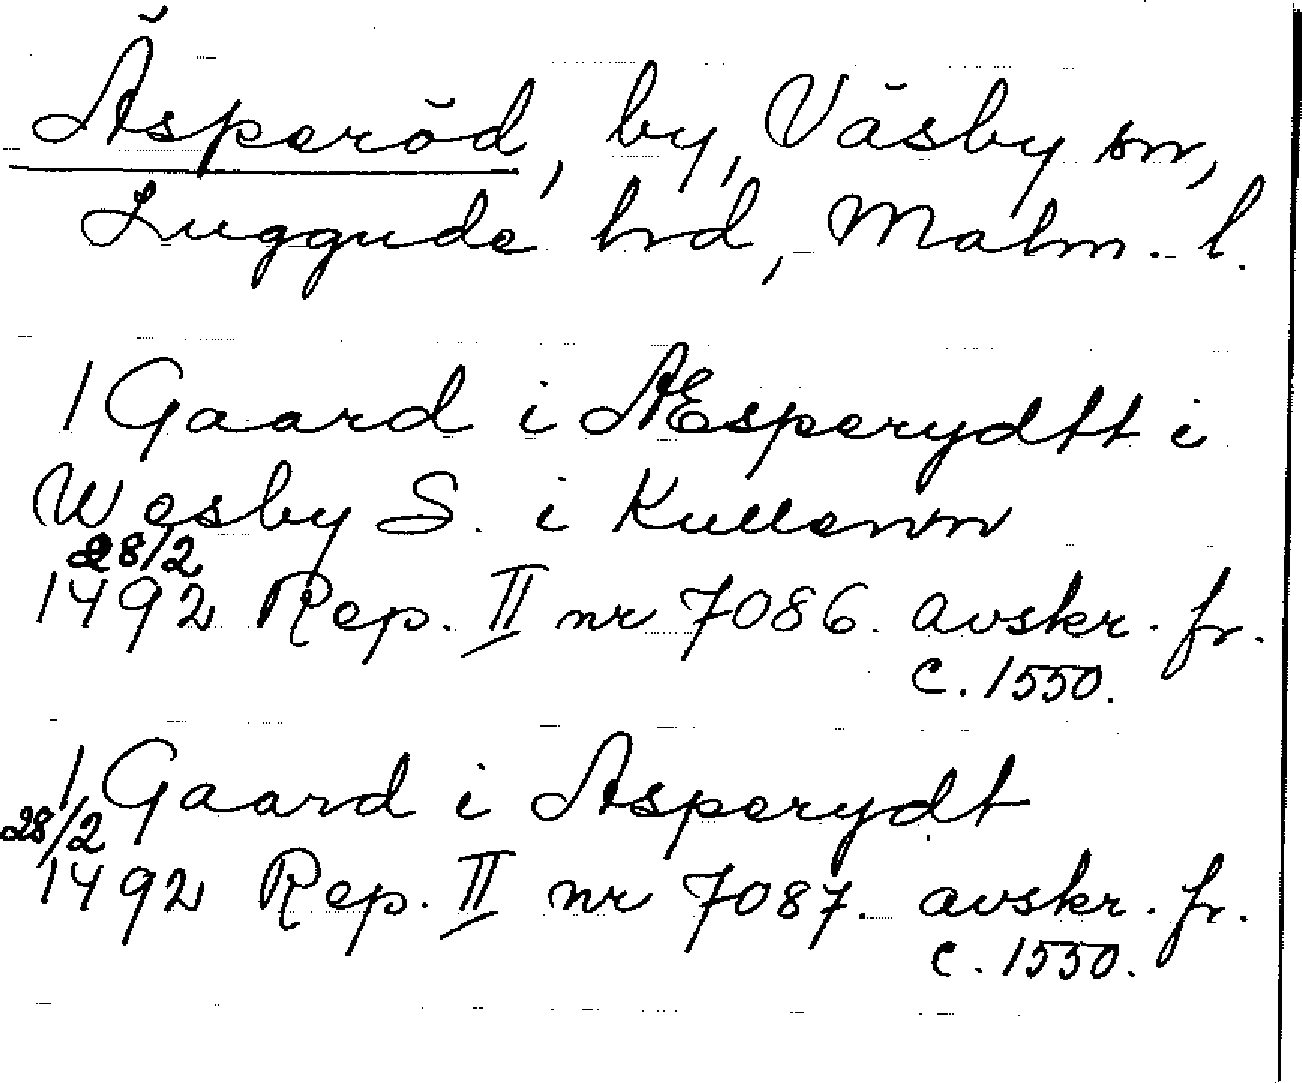 Äsperöd, by, Väsby sn,
Luggude hrd, Malm. l.
1 Gaard i Æsperydtt i
Wesby S. i Kullenn
28/2
1492 Rep. II nr 7086. avskr. fr.
c. 1550.
1 Gaard i Asperydt
28/2
1492 Rep. II nr 7087. avskr. fr.
c. 1550.